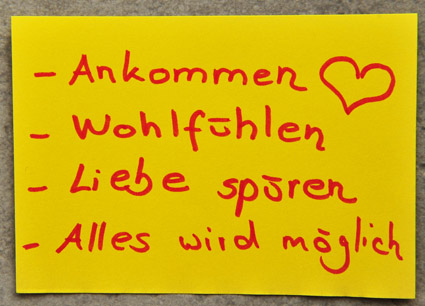 - Ankommen
- Wohlfühlen
- Liebe spüren
- Alles wird möglich